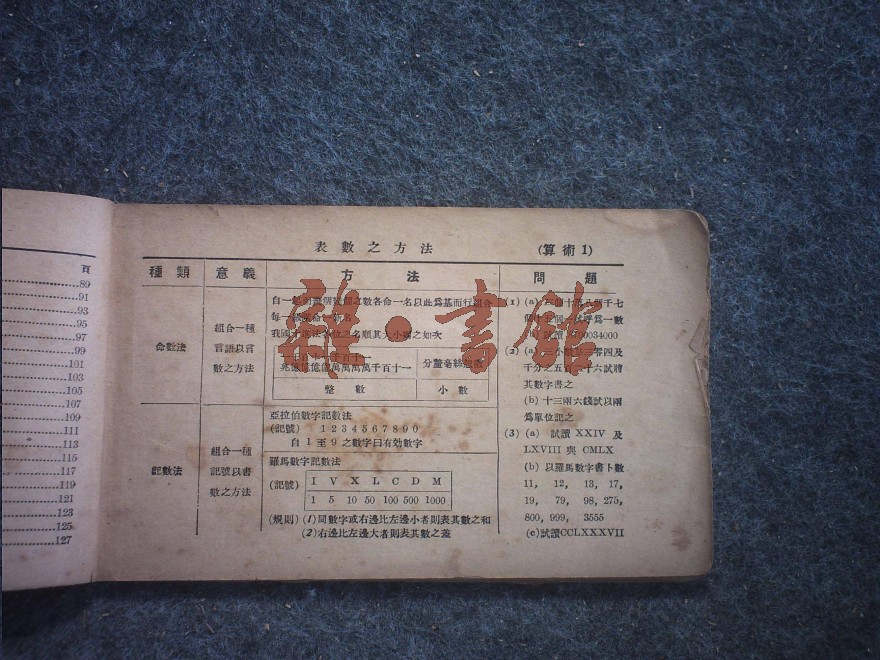 頁
89
91
93
95
97
99
101
103
105
107
109
111
113
115
117
119
121
123
125
127
表數之方法
(算術1)
種類 意義 方法 問題
命數法
組合一種
言語以言
數之方法
每一
我國
兆億億億億萬萬萬萬千百十一
分釐毫絲
整數 小數
記數法
組合一種
記號以書
數之方法
亞拉伯數字記數法
(記號) 1 2 3 4 5 6 7 8 9 0
自1至9之數字曰有効數字
羅馬數字記數法
(記號)
I V X L C D M
1 5 10 50 100 500 1000
(規則) (1) 同數字或右邊比左邊小者則表其數之和
(2) 右邊比左邊大者則表其數之差
(1) (a)
千七
爲一數
試讀
(2) (a)
零四及
千分之五
六試將
其數字書之
(b) 十三兩六錢試以兩
爲單位記之
(3) (a) 試讀 XXIV 及
LXVIII 與 CMLX
(b) 以羅馬數字書下數
11, 12, 13, 17,
19, 79, 98, 275,
800, 999, 3555
(c)試讀CCLXXXVII
雜·書館